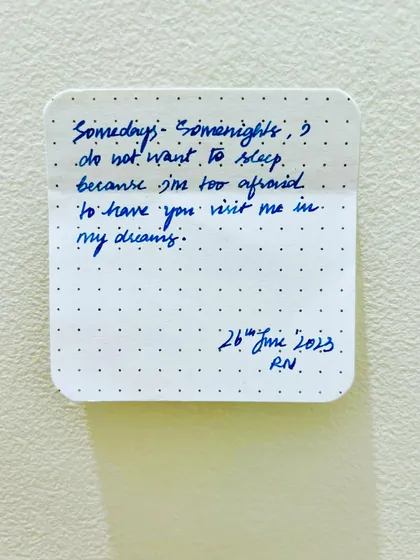 Somedays - Somenights, I
do not want to sleep
because i'm too afraid
to have you visit me in
my dreams.
26th June '2023
RN